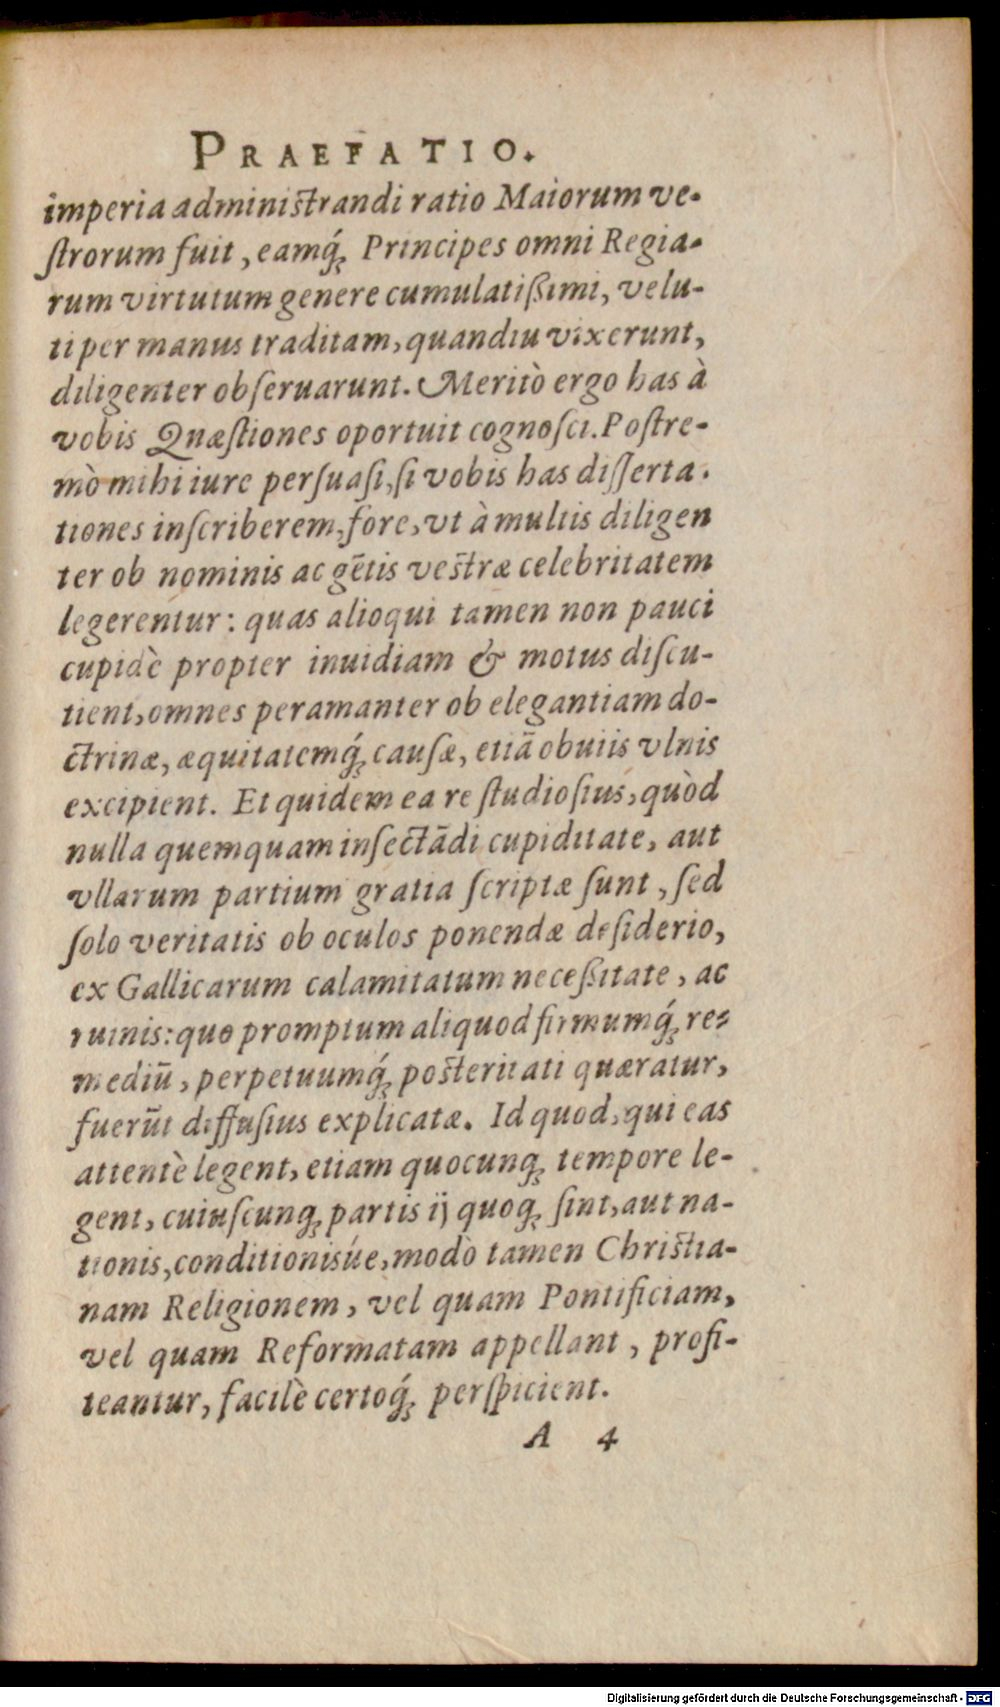 PRAEFATIO.
imperia administrandi ratio Maiorum ve-
ſtrorum fuit, eamq́ꝫ Principes omni Regia-
rum virtutum genere cumulatißimi, velu-
ti per manus traditam, quandiu vixerunt,
diligenter obſeruarunt. Meritò ergo has à
vobis Quæſtiones oportuit cognoſci. Poſtre-
mò mihi iure perſuaſi, ſi vobis has diſſerta-
tiones inſcriberem, fore, vt à multis diligen
ter ob nominis ac gẽtis veſtræ celebritatem
legerentur: quas alioqui tamen non pauci
cupidè propter inuidiam & motus diſcu-
tient, omnes peramanter ob elegantiam do-
ctrinæ, æquitatemq́ꝫ cauſæ, etiã obuiis vlnis
excipient. Et quidem ea re ſtudioſius, quòd
nulla quemquam inſectãdi cupiditate, aut
vllarum partium gratia ſcriptæ ſunt, ſed
ſolo veritatis ob oculos ponendæ deſiderio,
ex Gallicarum calamitatum neceßitate, ac
ruinis: quo promptum aliquod firmumq́ꝫ re-
mediũ, perpetuumq́ꝫ poſteritati quæratur,
fuerũt diffuſius explicatæ. Id quod, qui eas
attentè legent, etiam quocunqꝫ tempore le-
gent, cuiuſcunqꝫ partis ij quoqꝫ ſint, aut na-
tionis, conditionisúe, modò tamen Chriſtia-
nam Religionem, vel quam Pontificiam,
vel quam Reformatam appellant, profi-
teantur, facilè certoq́ꝫ perſpicient.
A 4
Digitalisierung gefördert durch die Deutsche Forschungsgemeinschaft - DFG